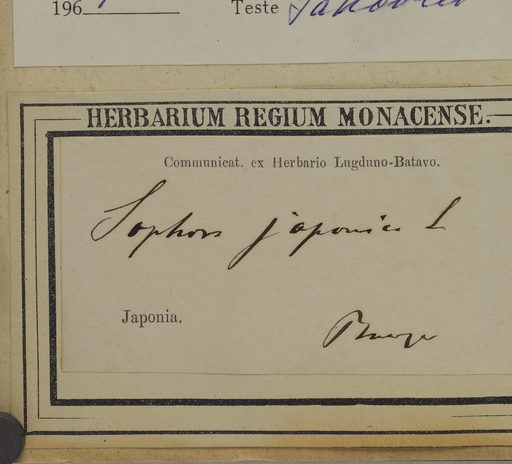 196
Teste Jakovlev
HERBARIUM REGIUM MONACENSE.
Communicat. ex Herbario Lugduno-Batavo.
Sophora japonica L
Japonia.
Buerger